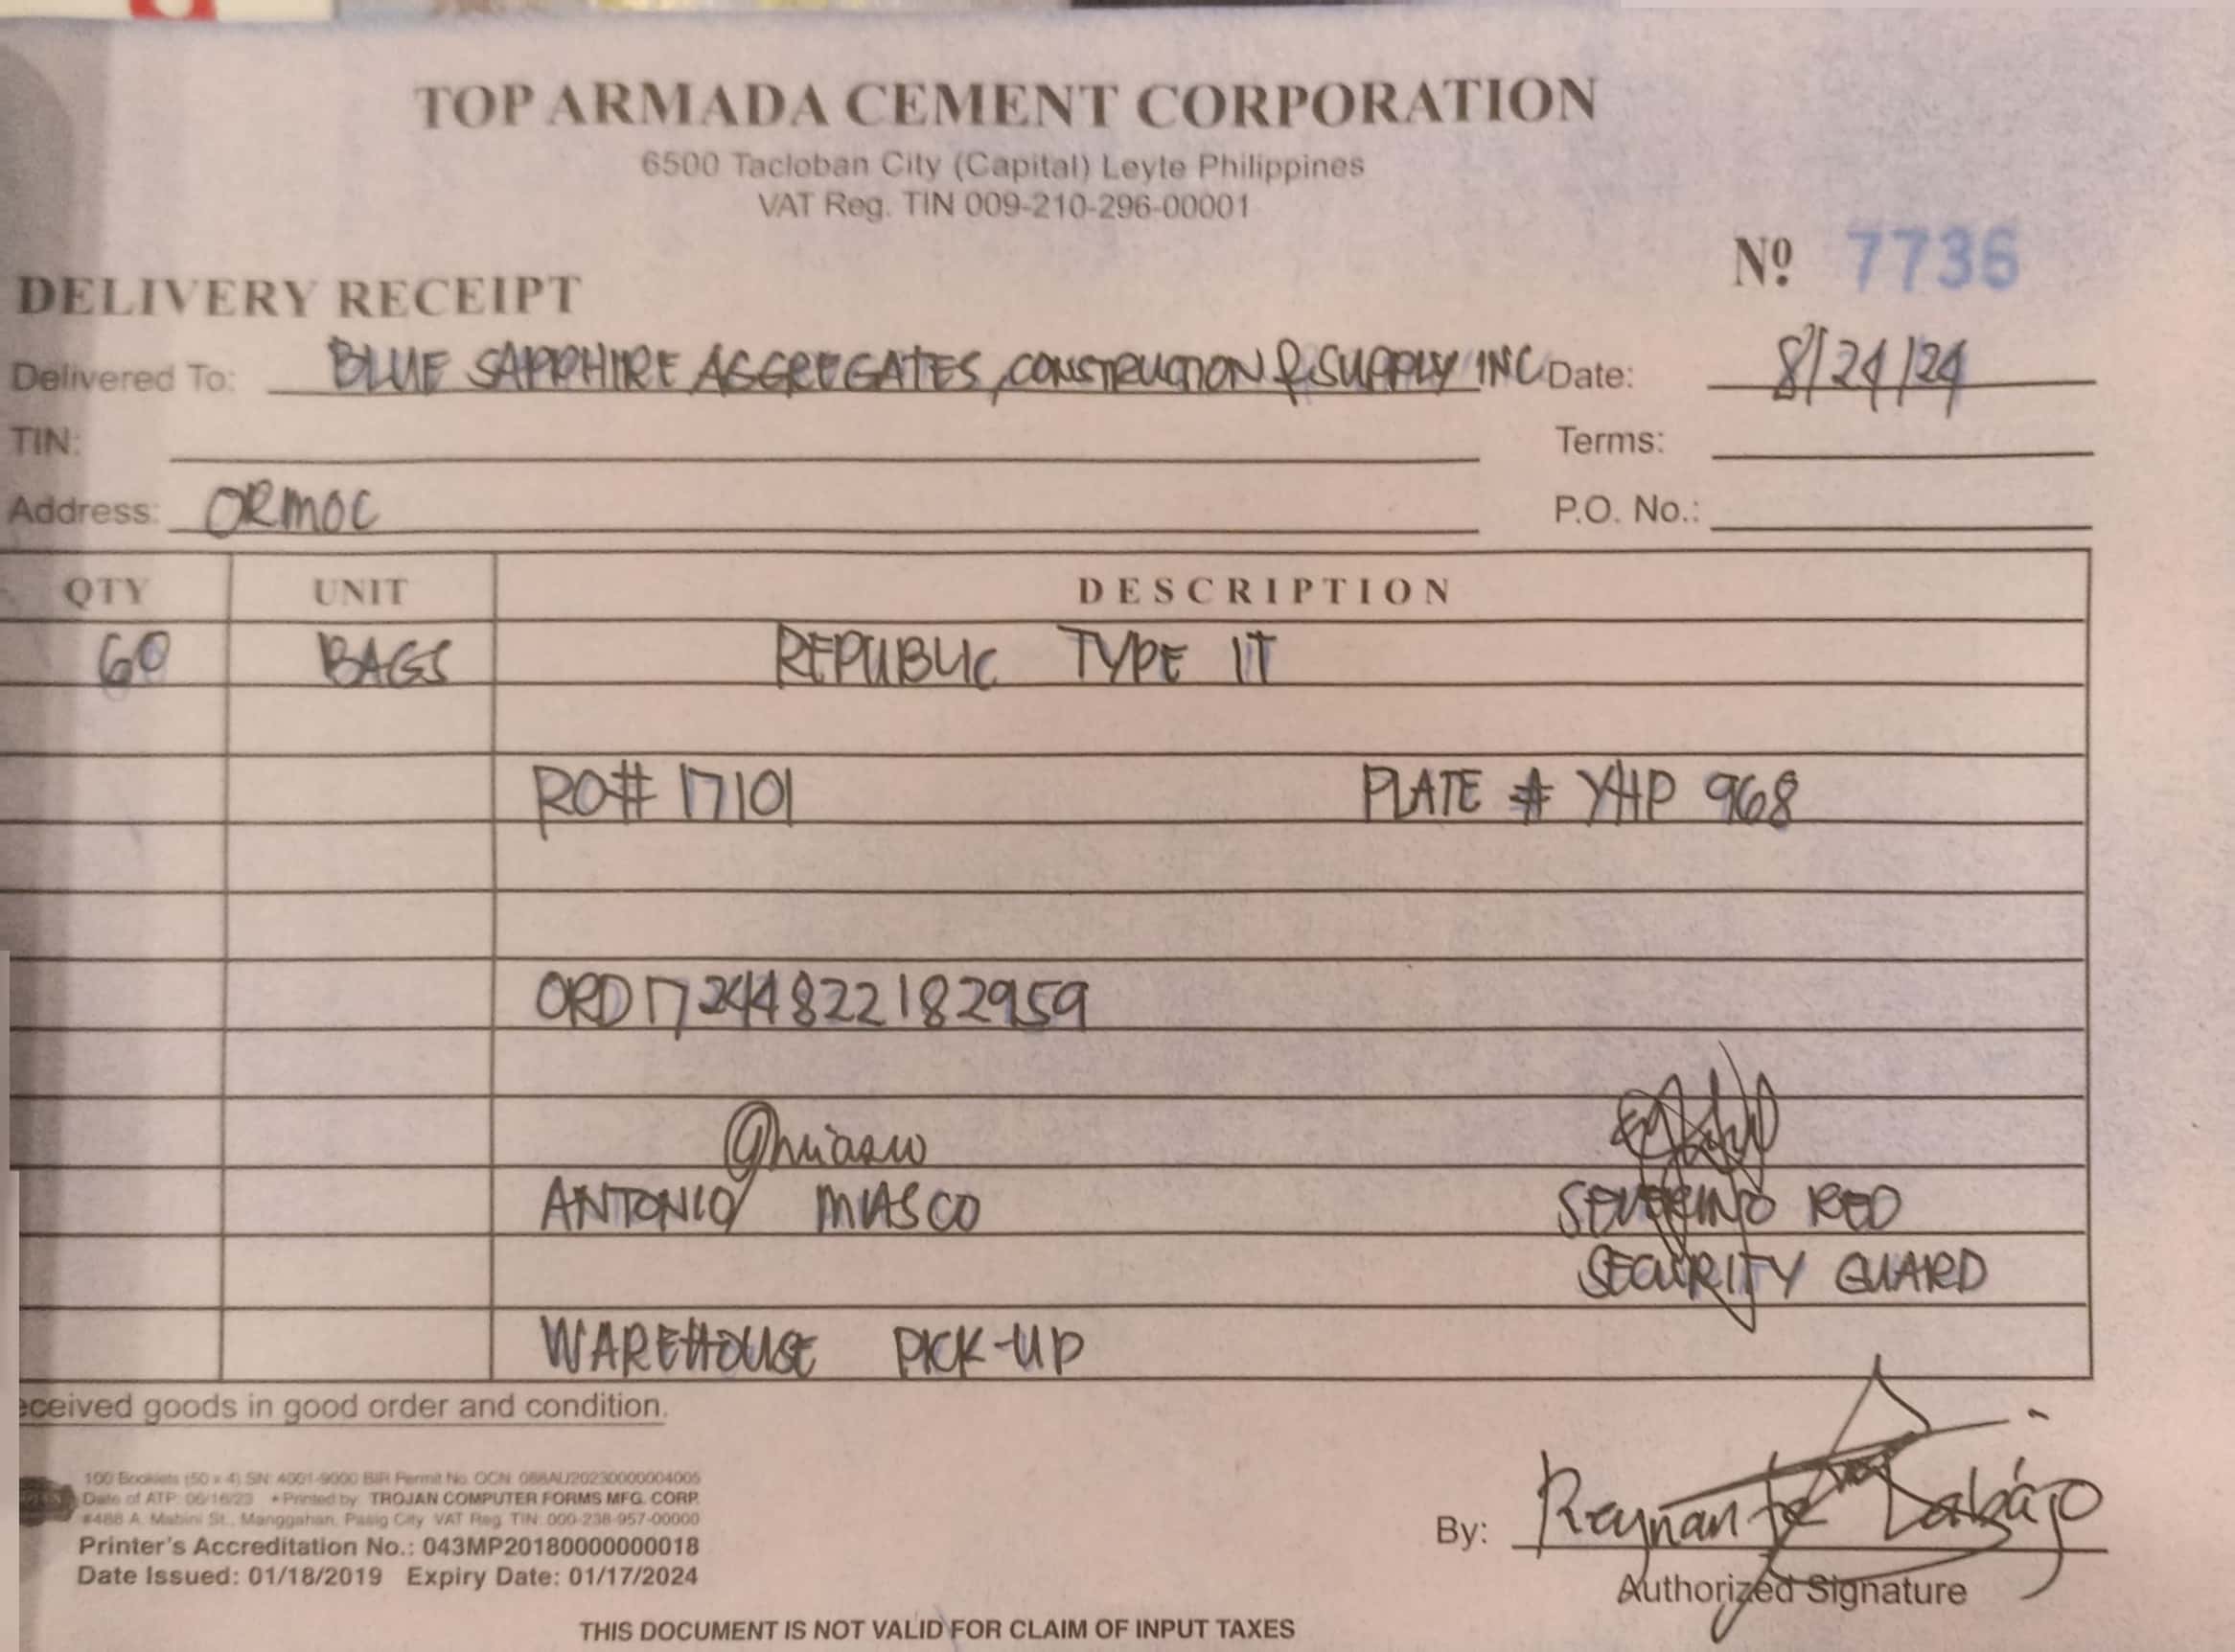 TOP ARMADA CEMENT CORPORATION
6500 Tacloban City (Capital) Leyte Philippines
VAT Reg. TIN 009-210-296-00001
Nº 7736
DELIVERY RECEIPT
Delivered To: BLUE SAPPHIRE AGGREGATES, CONSTRUCTION & SUPPLY INC Date: 8/24/24
TIN: Terms:
Address: ORMOC P.O. No.:
QTY UNIT DESCRIPTION
60 BAGS REPUBLIC TYPE 1T
RO# 17101 PLATE # YHP 968
ORD1724482218 2959
ANTONIO MIASCO SEVERINO RED
SECURITY GUARD
WAREHOUSE PICK-UP
eceived goods in good order and condition.
100 Booklets (50 x 4) SN: 4001-9000 BIR Permit No. OCN: 088AU20230000004005
Date of ATP: 06/16/23 • Printed by: TROJAN COMPUTER FORMS MFG. CORP.
#488 A. Mabini St., Manggahan, Pasig City VAT Reg. TIN: 000-238-957-00000
Printer's Accreditation No.: 043MP20180000000018
Date Issued: 01/18/2019 Expiry Date: 01/17/2024
By: Reynante Labajo
Authorized Signature
THIS DOCUMENT IS NOT VALID FOR CLAIM OF INPUT TAXES